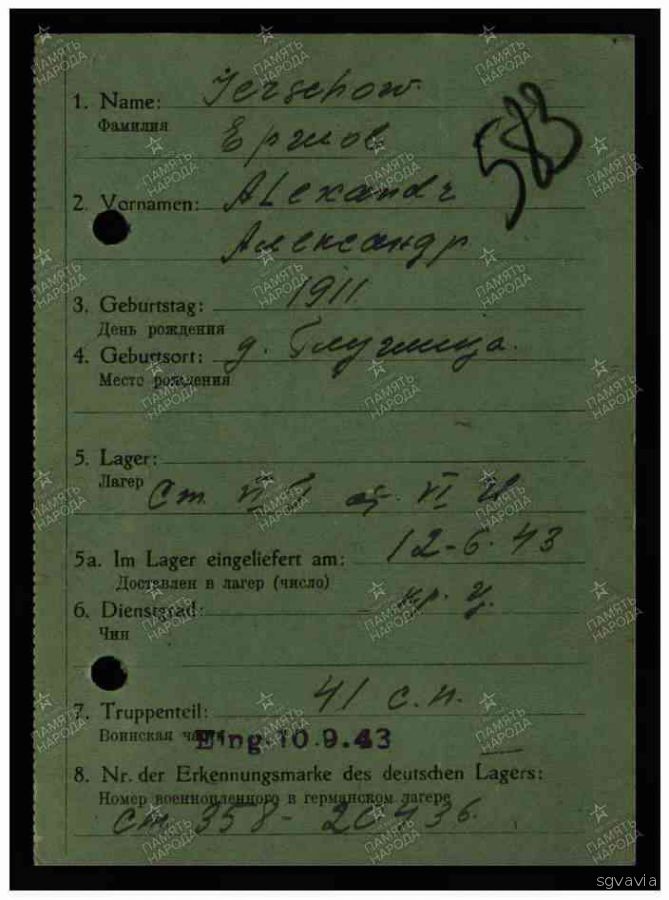 1. Name: Jerschow
583
Фамилия Ершов
2. Vornamen: Alexandr
Александр
3. Geburtstag: 1911
День рождения
4. Geburtsort: д. Глушица.
Место рождения
5. Lager:
Лагер Ст. VI
5a. Im Lager eingeliefert am: 12-6-43
Доставлен в лагер (число)
6. Dienstgrad:
Чин
7. Truppenteil: 41 с.п.
Воинская часть Eing. 10.9.43
8. Nr. der Erkennungsmarke des deutschen Lagers:
Номер военнопленного в германском лагере
ст 358-
ПАМЯТЬ НАРОДА
sgvavia